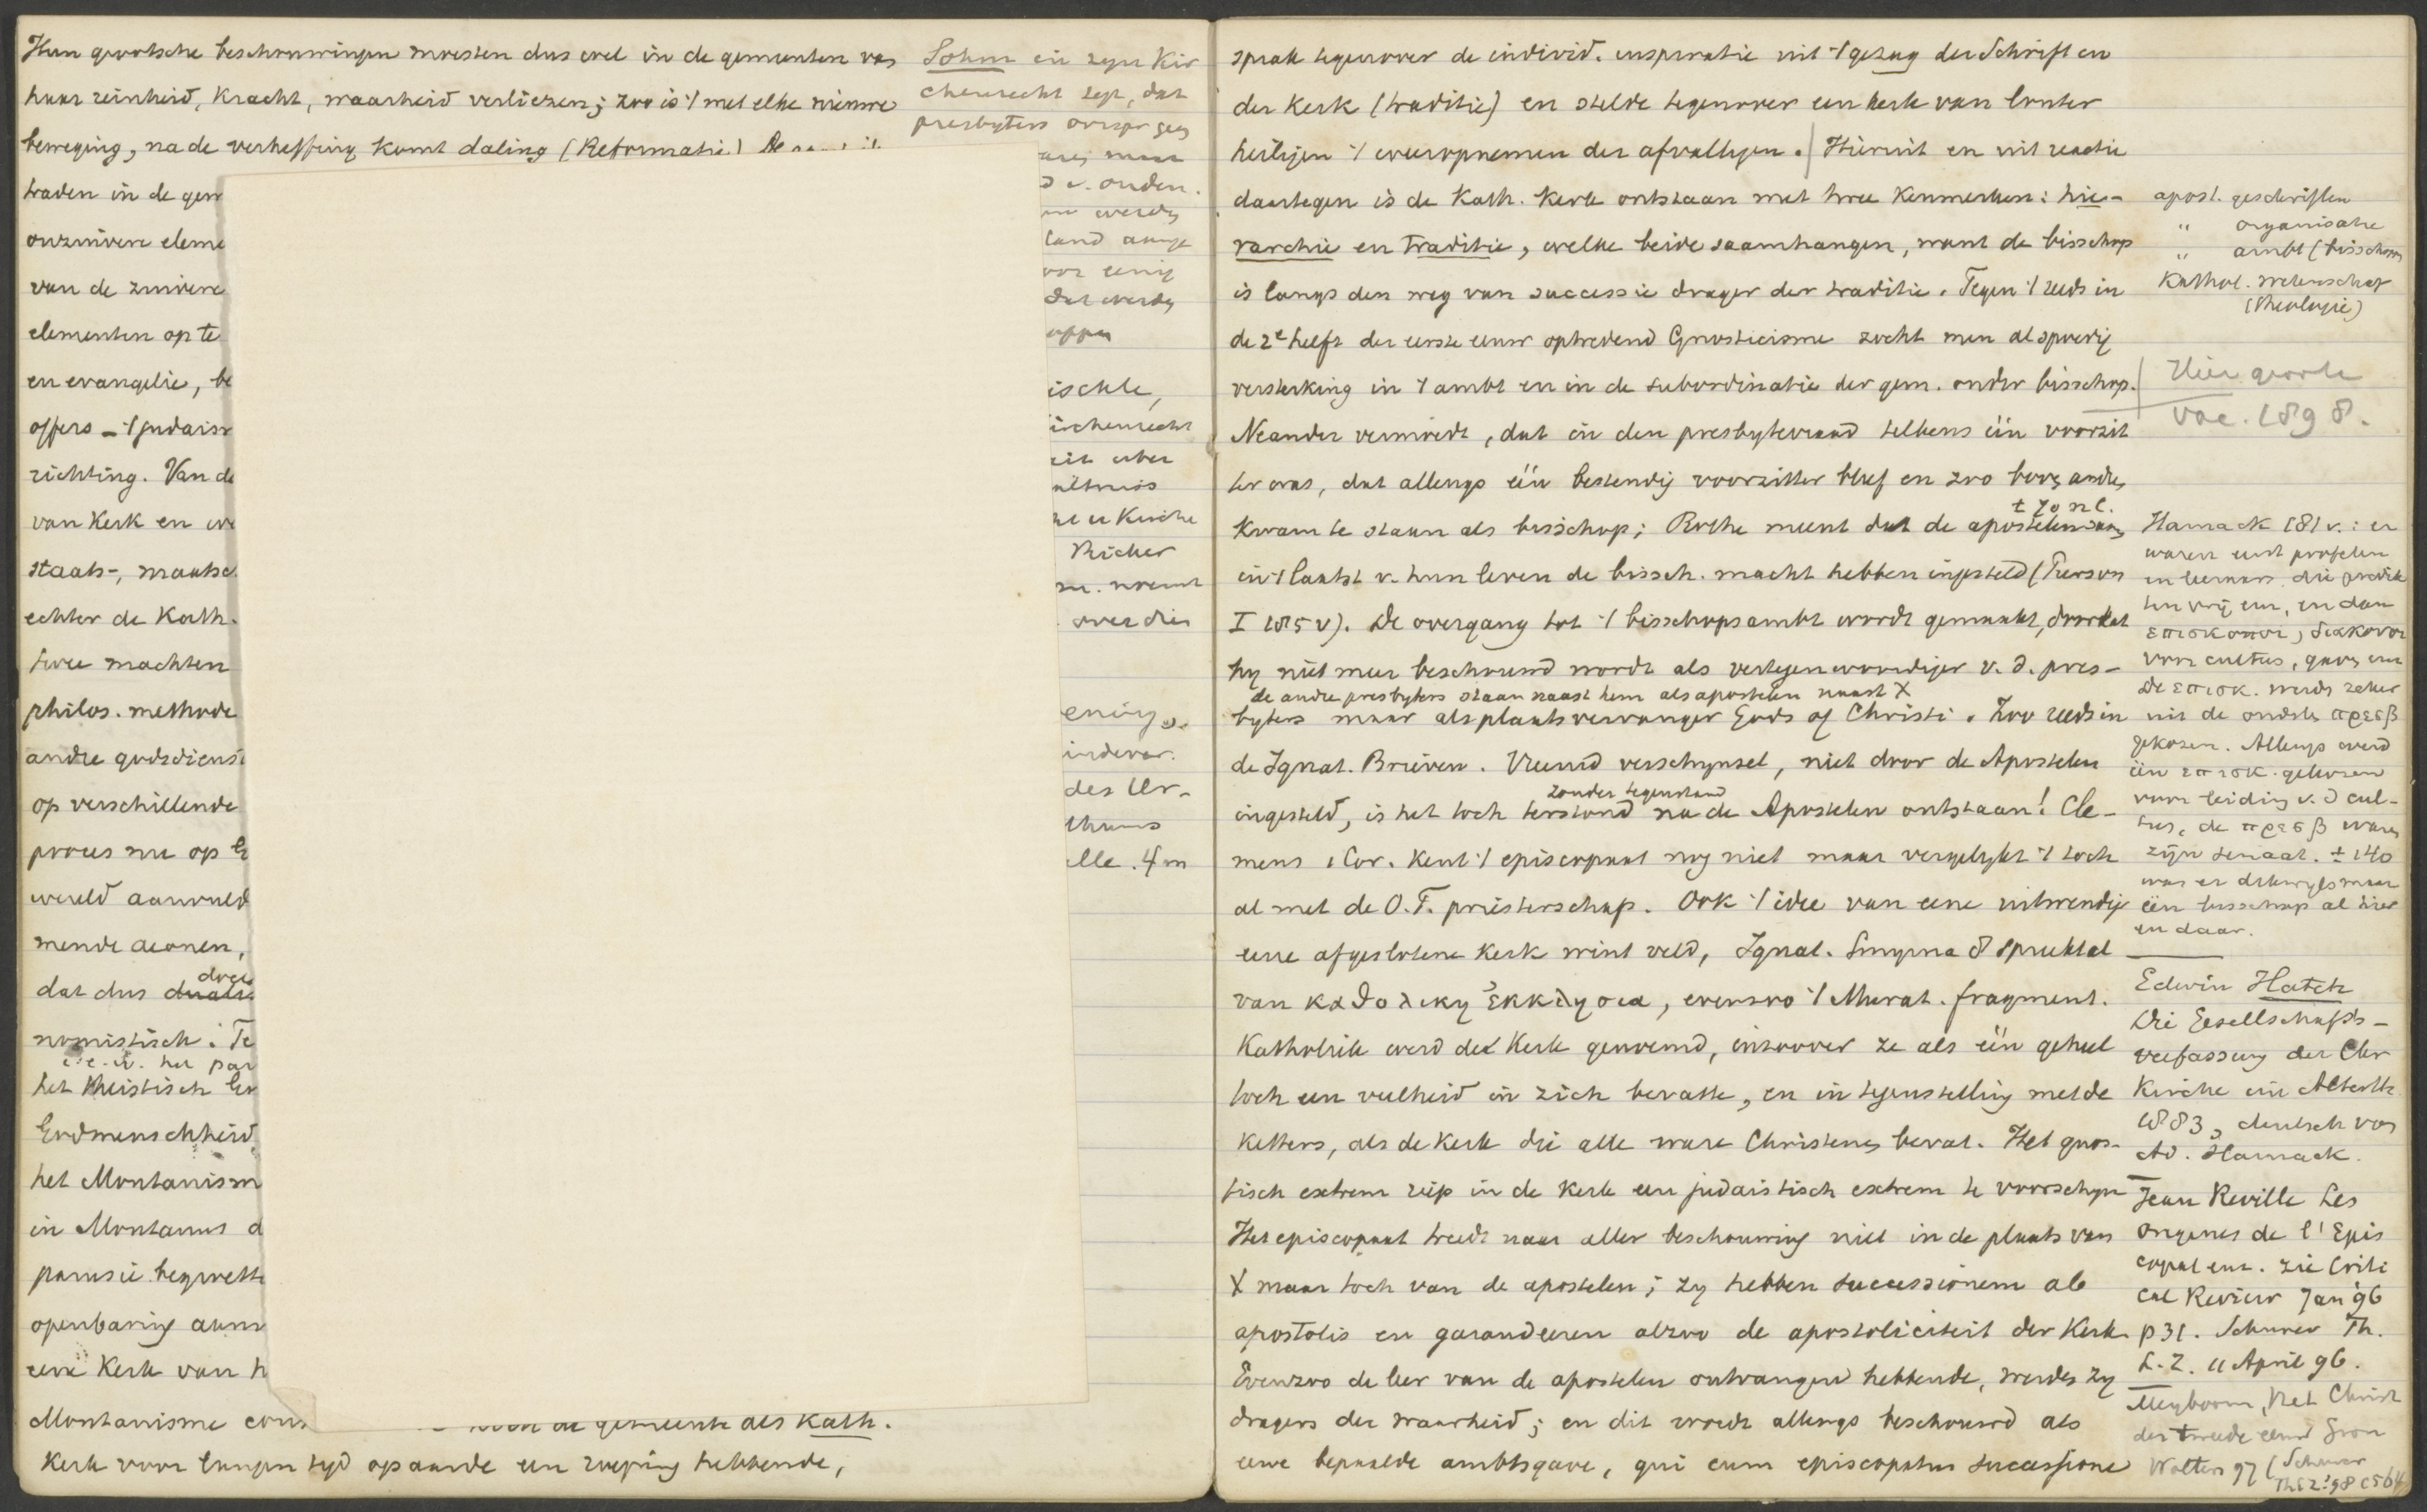 Hun grootsche beschouwingen moesten dus wel in de gemeenten van
haar reinheid, kracht, waarheid verliezen; zoo is 't met elke nieuwe
beweging, na de verheffing komt daling (Reformatie)
traden in de gem
onzuivere eleme
van de zuivere
elementen op te
en evangelie, be
offers – 't judaïsm
richting. Van de
van Kerk en we
staats-, maatsc
echter de Kath.
twee machten
philos. methode
andre godsdienst
op verschillende
proces nu op
wereld aanvuld
mende aeonen,
doce
dat dus
nomistisch. Te
het par
het theistisch
Godmenschheid,
het Montanism
in Montanus d
parusie. begrett
openbaring aan
eene Kerk van h
Montanisme cons de gemeente als Kath.
Kerk voor langen tyd op aarde een roeping hebbende,
Sohm in zyn Kir
chenrecht zegt, dat
presbyters oorspr. geen
maar
v. ouden.
werden
land
eenig
dat werden
ischle,
irchenrecht
über
ältniss
Kirche
Richer
noemt
over die
enig
des Ur-
thums
lle. 4 m
sprak tegenover de individ. inspiratie uit 't gezag der Schrift en
der Kerk (traditie) en stelde tegenover een kerk van louter
heiligen 't weeropnemen der afvalligen. Hieruit en uit reactie
daartegen is de Kath. Kerk ontstaan met twee kenmerken: hie-
rarchie en traditie, welke beide saamhangen, want de bisschop
is langs den weg van successie drager der traditie. Tegen 't reeds in
de 2e helft der eerste eeuw optredend Gnosticisme zocht men al spoedig
versterking in 't ambt en in de subordinatie der gem. onder bisschop.
Neander vermoedt, dat in den presbyterraad telkens één voorzit
ter was, dat allengs één bestendig voorzitter bleef en zoo boven andren
± 70 nl.
kwam te staan als bisschop; Rothe meent dat de apostelen
in 't laatst v. hun leven de bissch. macht hebben ingesteld (Pierson
I 185 v). De overgang tot 't bisschopsambt wordt gemaakt, doordat
hy niet meer beschouwd wordt als vertegenwoordiger v. d. pres-
de andre presbyters staan naast hem als apostelen naast X
byters maar als plaatsvervanger Gods of Christi. Zoo reeds in
de Ignat. Brieven. Vreemd verschynsel, niet door de Apostelen
zonder tegenstand
ingesteld, is het toch terstond na de Apostelen ontstaan! Cle-
mens 1 Cor. kent 't episcopaat nog niet maar vergelykt 't toch
al met de O.T. priesterschap. Ook 't idee van eene uitwendige
eene afgeslotene Kerk wint veld, Ignat. Smyrna 8 spreekt al
van καθολικη ἐκκλησια, evenzoo 't Murat. fragment.
Katholiek werd de Kerk genoemd, inzoover ze als één geheel
toch een veelheid in zich bevatte, en in tegenstelling met de
ketters, als de Kerk die alle ware Christenen bevat. Het gnos-
tisch extrem riep in de Kerk een judaistisch extrem te voorschyn
Het episcopaat treedt naar aller beschouwing niet in de plaats van
X maar toch van de apostelen; zy hebben successionem ab
apostolis en garandeeren alzoo de apostoliciteit der Kerk.
Evenzoo de leer van de apostelen ontvangen hebbende, werden zy
dragers der waarheid; en dit wordt allengs beschouwd als
eene bepaalde ambtsgave, qui cum episcopatus successione
apost. geschriften
" organisatie
" ambt (bisschop
Kathol. wetenschap
(theologie)
Hier groote
vac. 1898.
Harnack 181 v.: er
waren eerst profeten
en leeraars die predik
ten vrij uit, en dan
επισκοποι, διακονοι
voor cultus, gaven enz
De επισκ. werden zeker
uit de oudste πρεσβ
gekozen. Allengs werd
één επισκ. gekozen
voor leiding v. d cul-
tus, de πρεσβ waren
zijn senaat. ± 140
was er dikwyls maar
één bisschop al hier
en daar.
Edwin Hatch
Die Gesellschafts-
verfassung der Chr
Kirche im Alterth.
1883, deutsch von
Ad. Harnack.
Jean Reville Les
origines de l'Epis
copat enz. zie Criti
cal Review Jan 96
p 31. Schurer Th.
L. Z. 11 April 96.
Meyboom, Het Christ
der tweede eeuw Gron
Wolters 97 (Schurer
ThLZ '98 c 564